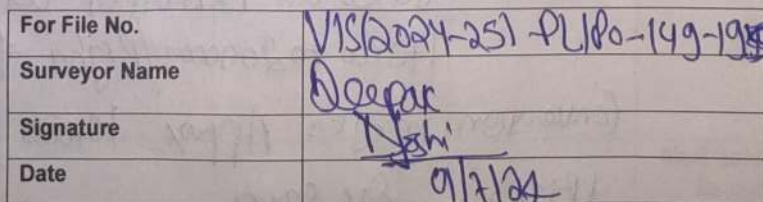 For File No. VIS(2024-25)-PL180-149-19
Surveyor Name Deepak
Signature Joshi
Date 9/7/24